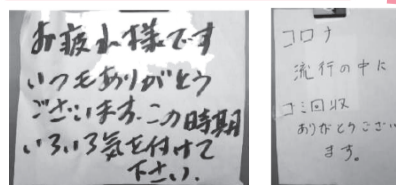 お疲れ様です
いつもありがとう
ございます。この時期
いろいろ気を付けて
下さい.
コロナ
流行の中に
ゴミ回収
ありがとうござい
ます。